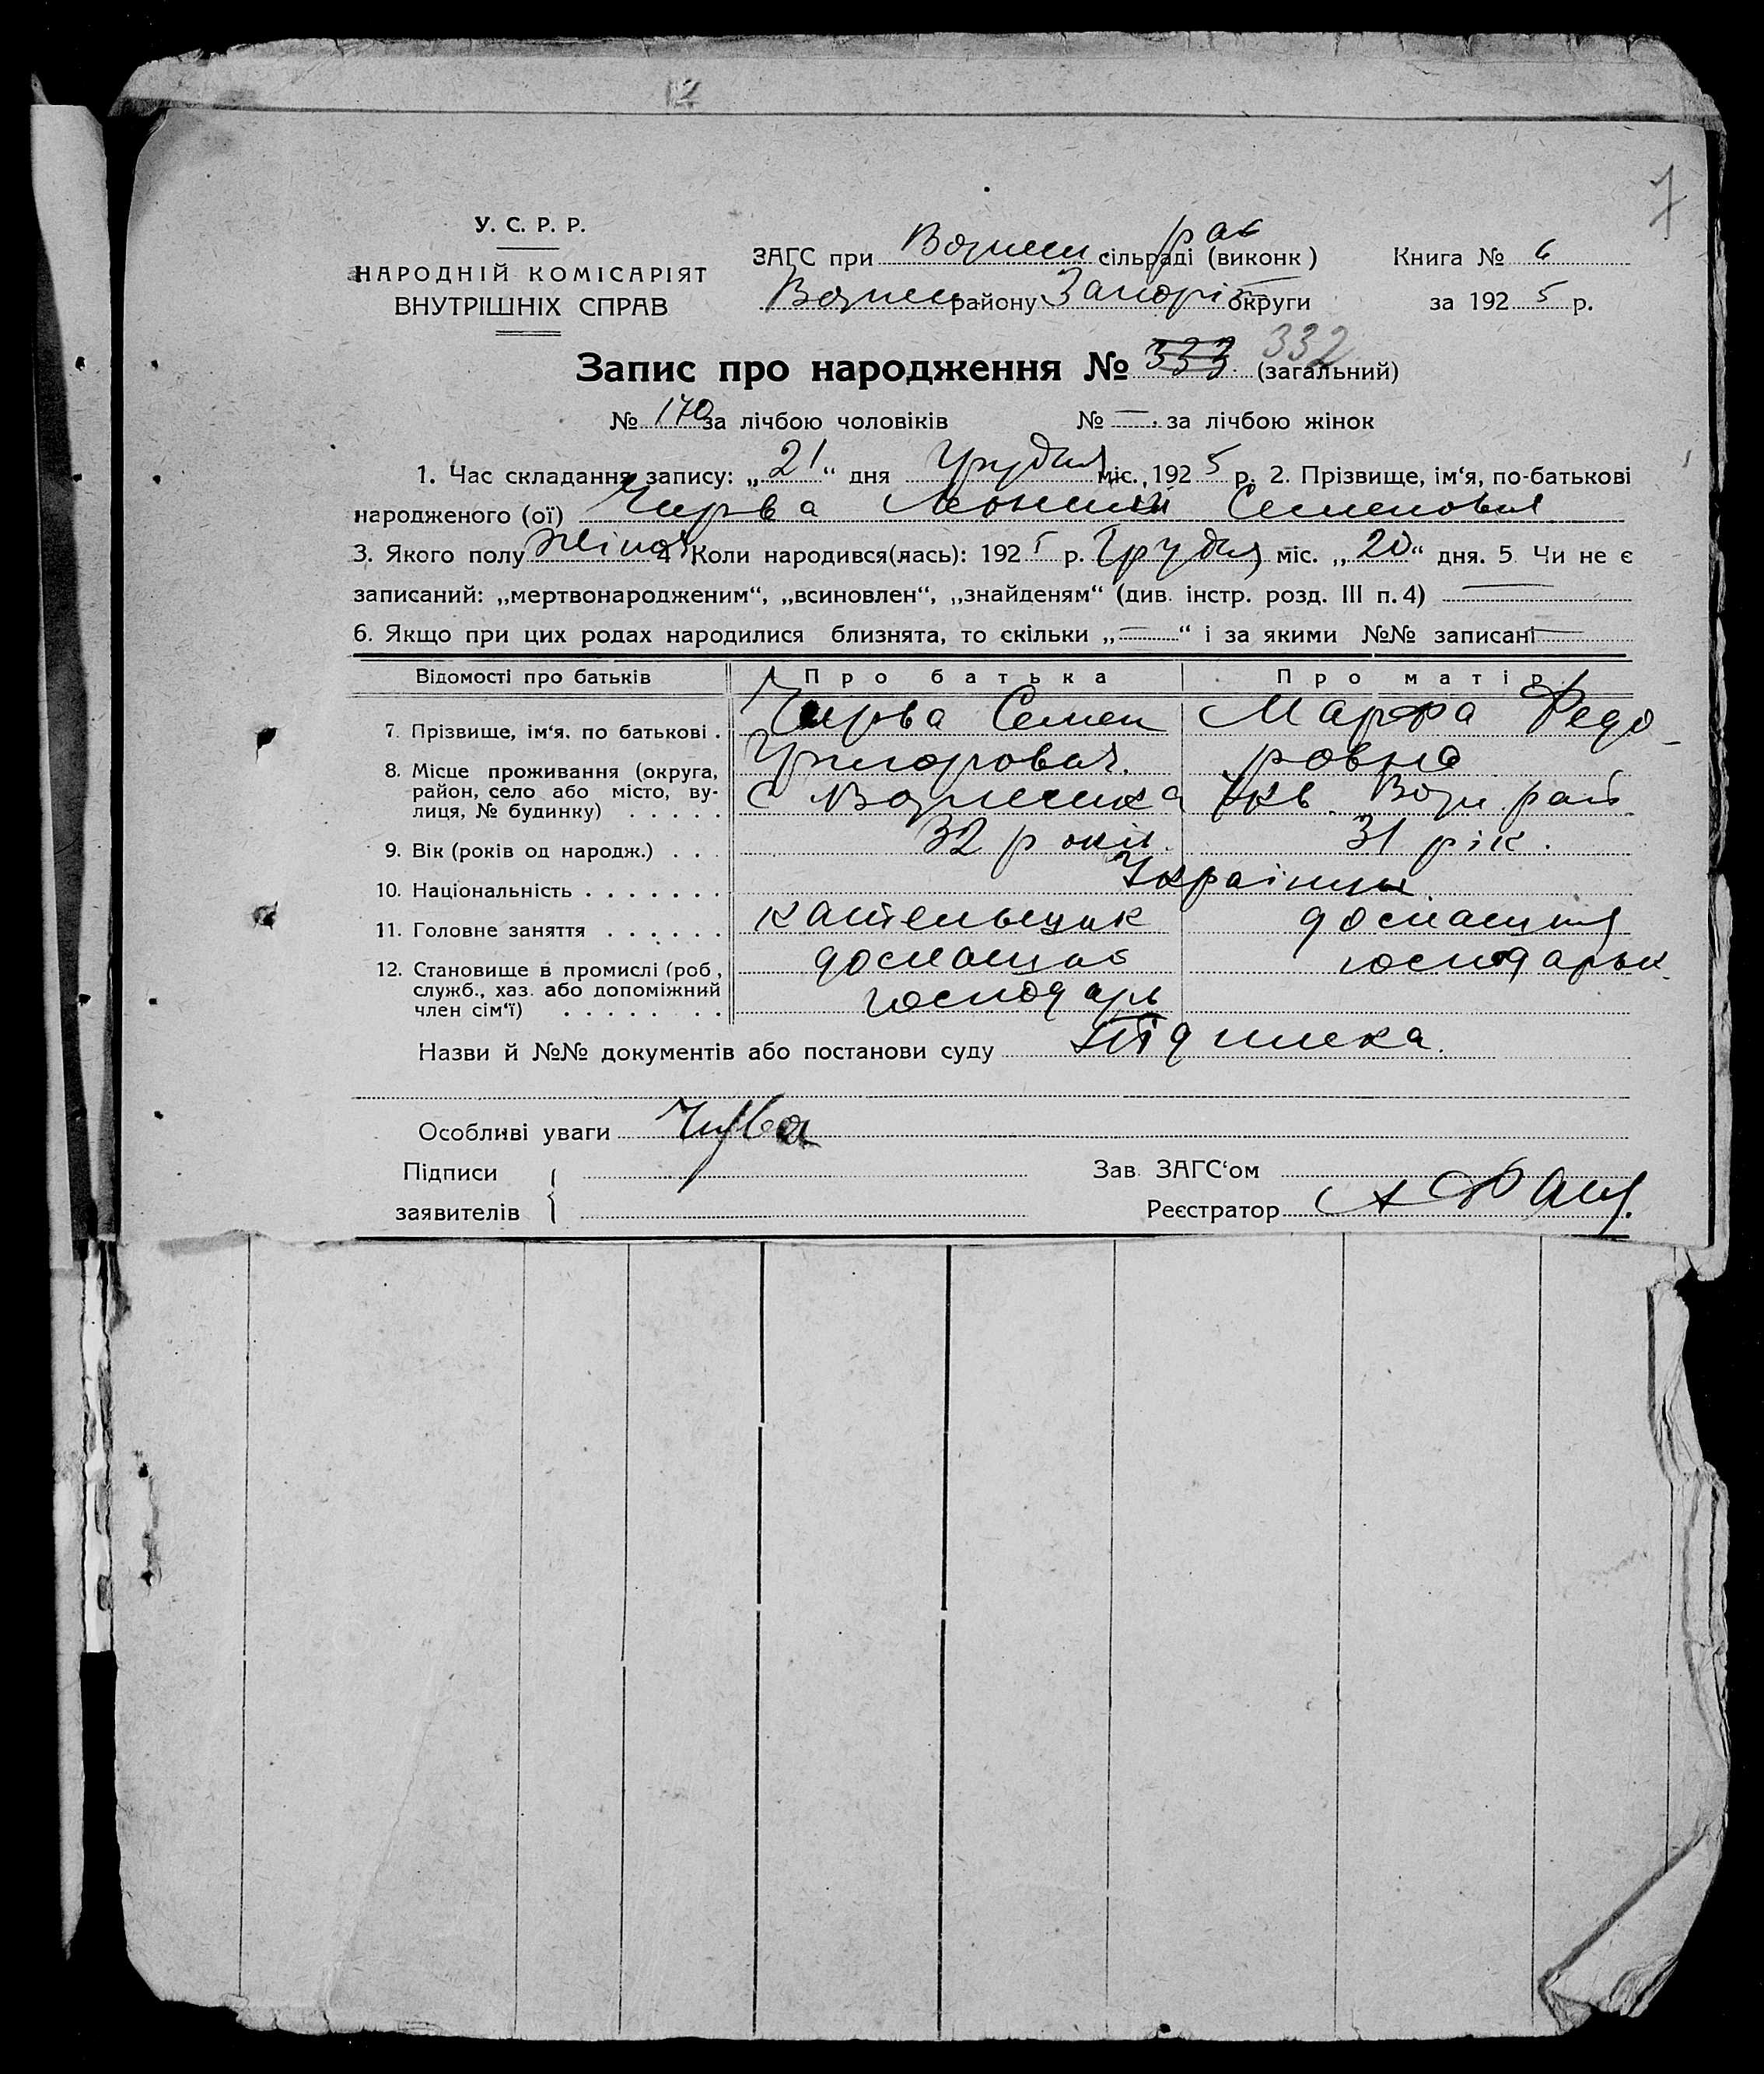 7
У. С. Р. Р.
НАРОДНІЙ КОМІСАРІЯТ
ВНУТРІШНІХ СПРАВ
ЗАГС при Вознесен сільраді (виконк) рай
Вознесен району Запоріж округи
Книга № 6
за 1925 р.
Запис про народження № 333 332 (загальний)
№ 170 за лічбою чоловіків № — за лічбою жінок
1. Час складання запису: „21“ дня Грудня міс., 1925 р. 2. Прізвище, ім‘я, по-батькові
народженого (ої) Чирва Семенович
3. Якого полу 4 Коли народився(лась): 1925 р. Грудня міс. „20“ дня. 5. Чи не є
записаний: „мертвонародженим“, „всиновлен“, „знайденям“ (див. інстр. розд. III п. 4) —
6. Якщо при цих родах народилися близнята, то скільки „—“ і за якими №№ записані —
Відомості про батьків Про батька Про матір
7. Прізвище, ім‘я. по батькові . Чирва Семен Марфа Федо
Григорович. ровна
8. Місце проживання (округа,
район, село або місто, ву-
лиця, № будинку) . . . . . с Вознесенка Возн. рай
9. Вік (років од народж.) . . . 32 роки. 31 рік.
10. Національність . . . . . . . Українці
11. Головне заняття . . . . . . домашня
12. Становище в промислі (роб,
служб., хаз. або допоміжний
член сім‘ї) . . . . . . . домашнє господарь господарьк
Назви й №№ документів або постанови суду Підписка.
Особливі уваги Чирва
Підписи
заявителів
Зав. ЗАГС‘ом
Реєстратор